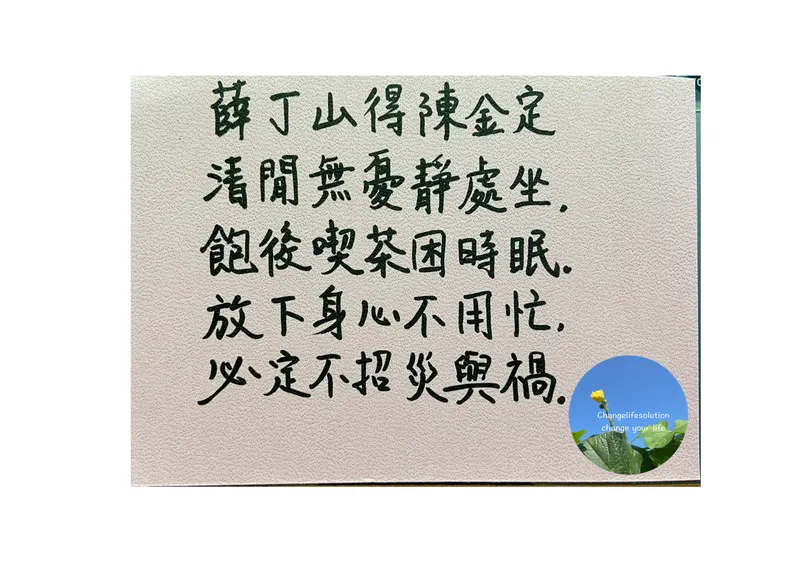 薛丁山得陳金定
清閒無憂靜處坐.
飽後喫茶困時眠.
放下身心不用忙.
必定不招災與禍.
Changelifesolution
change your life